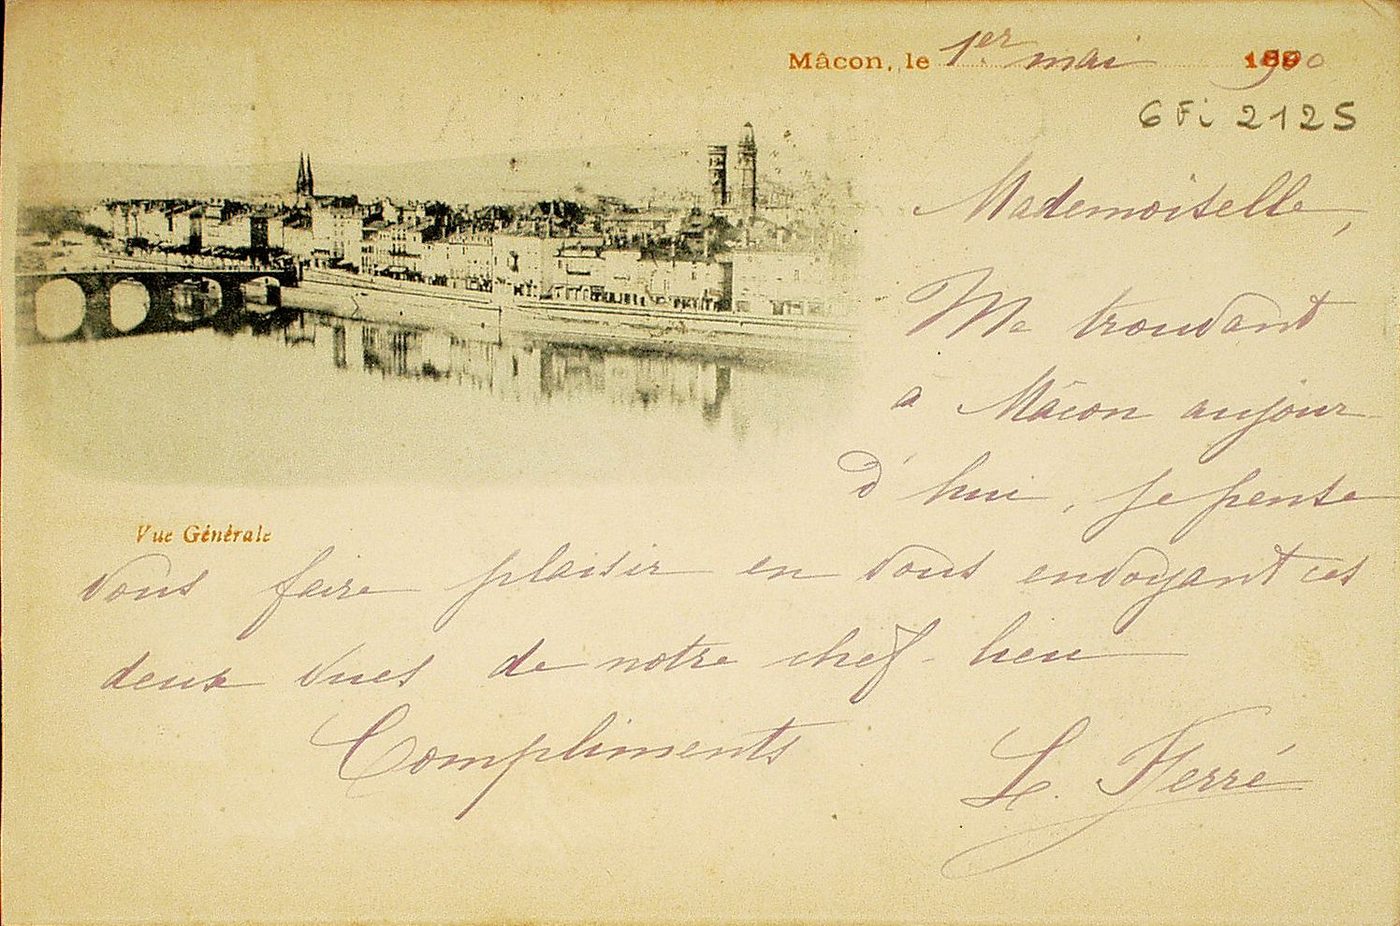 Mâcon, le 1er mai 1900
6 Fi 2125
Mademoiselle,
Me trouvant
à Mâcon aujour
d'hui, je pense
Vue Générale
vous faire plaisir en vous envoyant ces
deux vues de notre chef-lieu
Compliments
L. Ferré